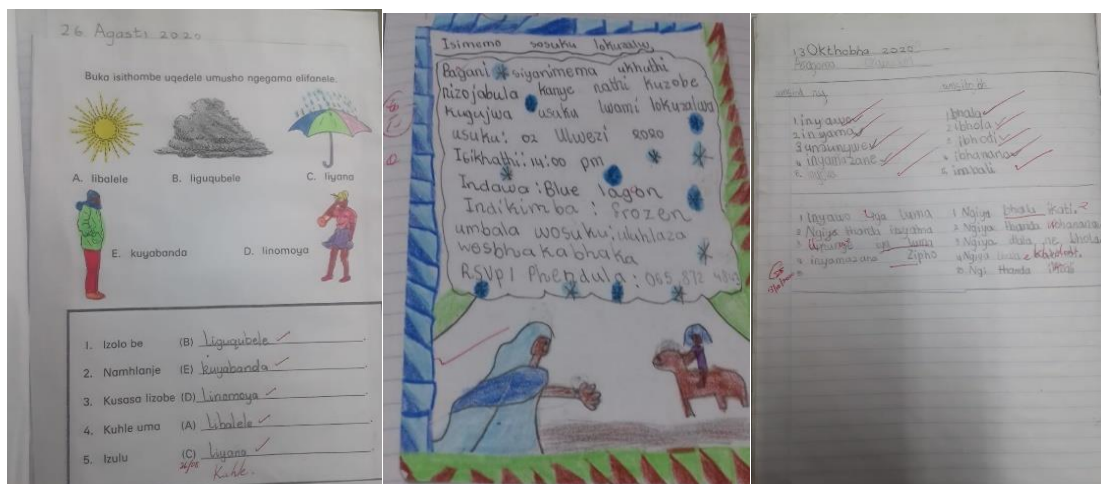 26 Agasti 2020
Buka isithombe uqedele umusho ngegama elifanele.
A. libalele
B. liguqubele
C. liyana
E. kuyabanda
D. linomoya
1. Izolo be (B) Liguqubele
2. Namhlanje (E) kuyabanda
3. Kusasa lizobe (D) Linomoya
4. Kuhle uma (A) Libalele
5. Izulu (C) Liyana
26/08
Kuhle.
Isimemo sosuku lokuzalwa
Bagani siyanimema ukhuthi
nizojabula kanye nathi kuzobe
kugujwa usuku lwami lokuzalwa
usuku: 02 Ulwezi 2020
Isikhathi: 14:00 pm
Indawa: Blue lagon
Indikimba: frozen
umbala wosuku: uluhlaza
wosbhakabhaka
RSVP | Phendula: 065 872
13 Okthobha 2020
1. inyawo
2. inyama
4. inyamazane
2. ibhola
3. ibhodi
4. ibhanana
5. imbali
1 Inyawo luma
2 Ngiya thanda inyama
4 inyamazane Zipho
1 Ngiya bhala ikati.
2 Ngiya thanda ibhanana
3 Ngiya dlala ne bhola
5 Ngi thanda